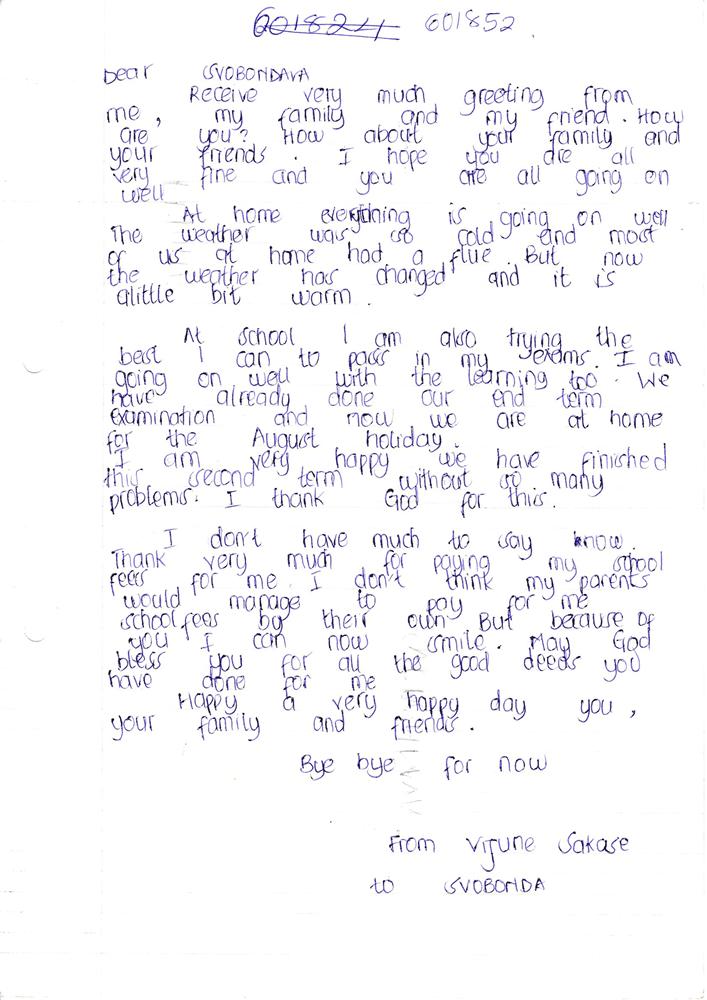 601824 601852
Dear SVOBONDAVA
Receive very much greeting from
me, my family and my friend. How
are you? How about your family and
your friends. I hope you are all
very fine and you are all going on
well
At home everything is going on well
The weather was so cold and most
of us at home had a flue. But now
the weather has changed and it is
alittle bit warm.
At school I am also trying the
best I can to pass in my exams. I am
going on well with the learning too. We
have already done our end term
Examination and now we are at home
for the August holiday.
I am very happy we have finished
this second term without so many
problems. I thank God for this.
I don't have much to say know.
Thank very much for paying my school
fees for me. I don't think my parents
would manage to pay for me
school fees by their own. But because of
you I can now smile. May God
bless you for all the good deeds you
have done for me
Happy a very happy day you,
your family and friends.
Bye bye for now
From Vijune Sakase
to SVOBONDA